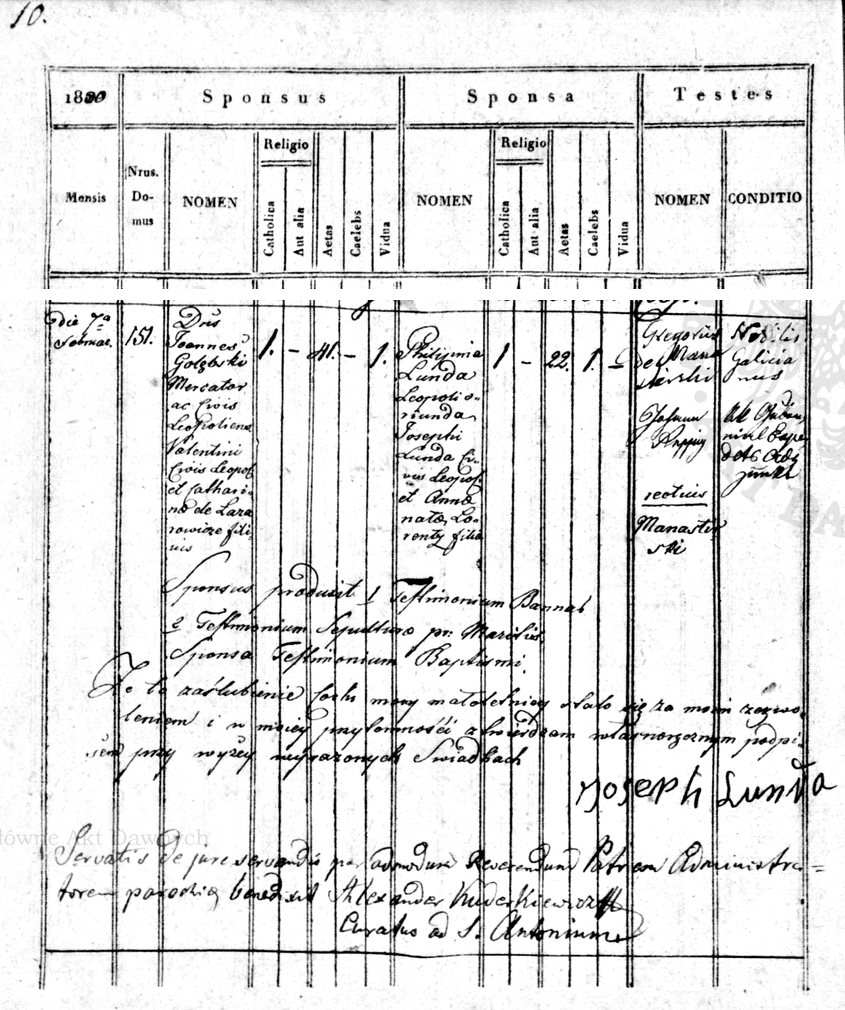 10.
1830
Sponsus
Sponsa
Testes
Mensis
Nrus. Do- mus
NOMEN
Religio
Catholica
Aut alia
Aetas
Caelebs
Vidua
NOMEN
Religio
Catholica
Aut alia
Aetas
Caelebs
Vidua
NOMEN
CONDITIO
die 7ª
151.
Dnus
Joannes
Gołębski
Mercator
ac Civis
Leopoliens
Valentini
Civis Leopol
et Cathari-
næ de Laza
rowicze fili
us
1. - 41. - 1.
Philipina
Lunda
Leopolio-
riunda
Josephi
Lunda Ci-
vis Leopol.
et Annæ
natæ Lo-
renty filia
1 - 22. 1. -
Gregorius
de Mana
sterski
Johann
rectius
Manaster
ski
Nobilis
Galicia
nus
Sponsus produxit 1 Testimonium Bannor
2 Testimonium Sepulturæ pr. Maritus
Sponsa Testimonium Baptismi.
Że to zaślubienie Corki moiey małoletniey stało się za moim zezwo-
leniem i w moiey przytomności stwierdzam własnoręcznym podpi-
sem przy wyżey wyrażonych Swiadkach
Joseph Lunda
Główne Akt Dawnych
Servatis de jure servandis per admodum Reverendum Patrem Administra=
torem parochiæ benedixit Alexander Kuderkiewicz
Curatus ad S. Antonium